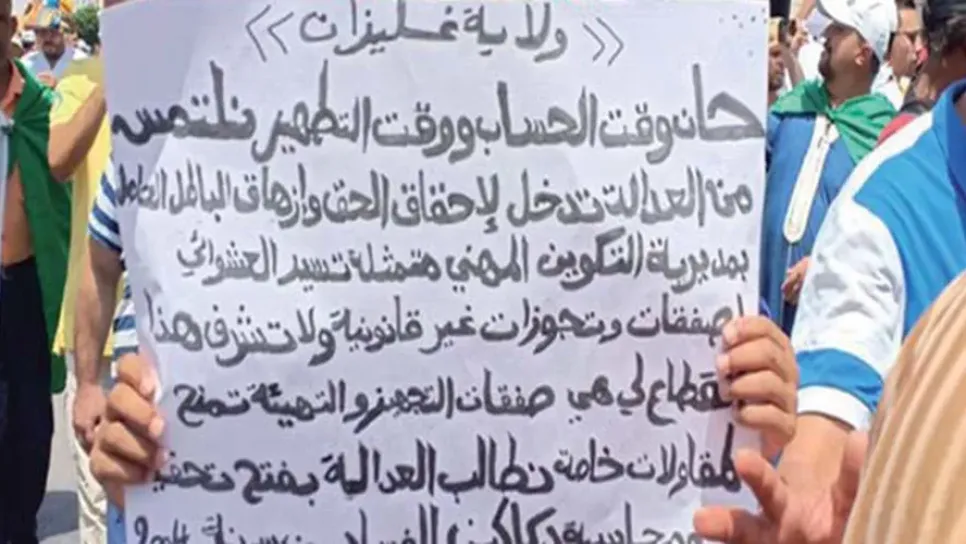 << ولاية غليزان >>
حان وقت الحساب ووقت التطهير نلتمس
من العدالة تدخل لإحقاق الحق وإزهاق الباطل الحاصل
بمديرية التكوين المهني متمثلة تسير العشوائي
لصفقات وتجوزات غير قانونية ولا تشرف هذا
لقطاع لي هي صفقات التجهيز والتهيئة تمنح
لمقاولات خاصة نطالب العدالة بفتح تحقيق
ومحاسبة دكاكين الفساد من سنة 2004